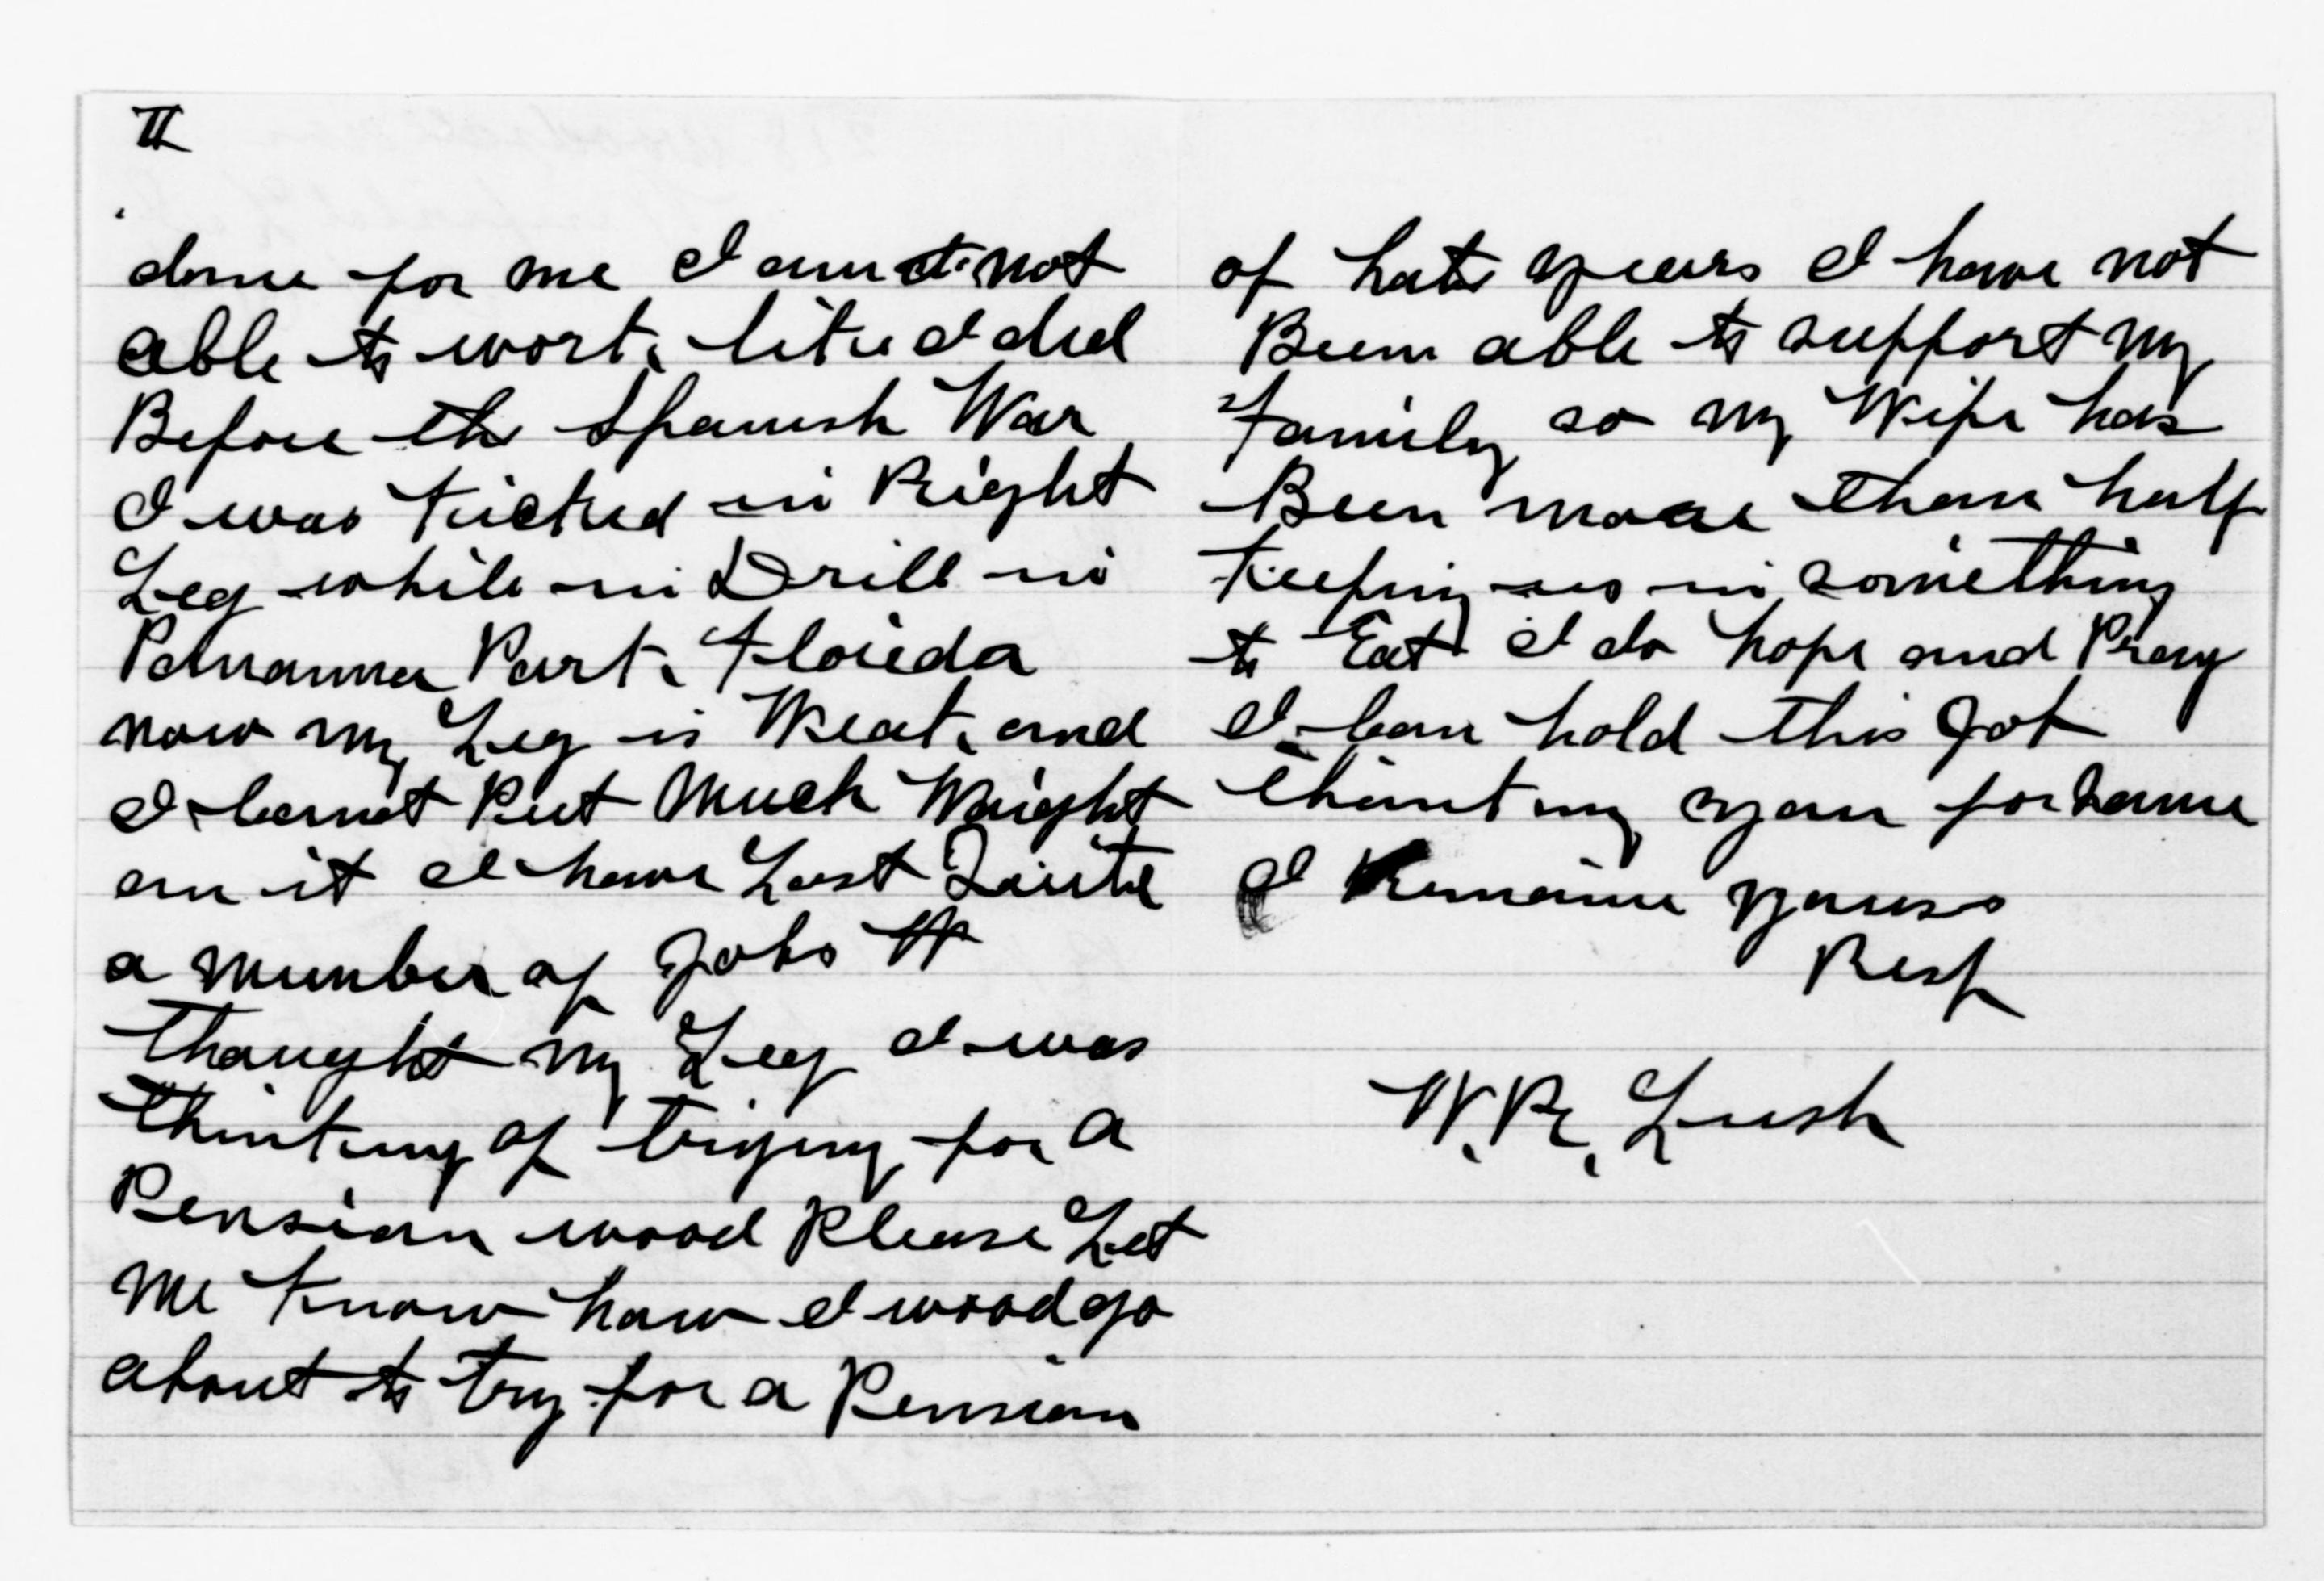 II
done for me I am not
able to work like I did
Before the Spanish War
I was kicked in Right
Leg while in Drill in
Panama Park Florida
now my Leg is Weak and
I cannot Put Much Waight
on it I have Lost Quite
a number of Jobs
thought my Leg I was
thinking of trying for a
Pension wood Please Let
Me know how I wood go
about to try for a Pension
of Late years I have not
Been able to support my
Family so my Wife has
Been more than half
Keeping us in something
to Eat I do hope and Pray
I can hold this Job
thinking you for Same
I Remaine yours
Resp
W.R. Lush